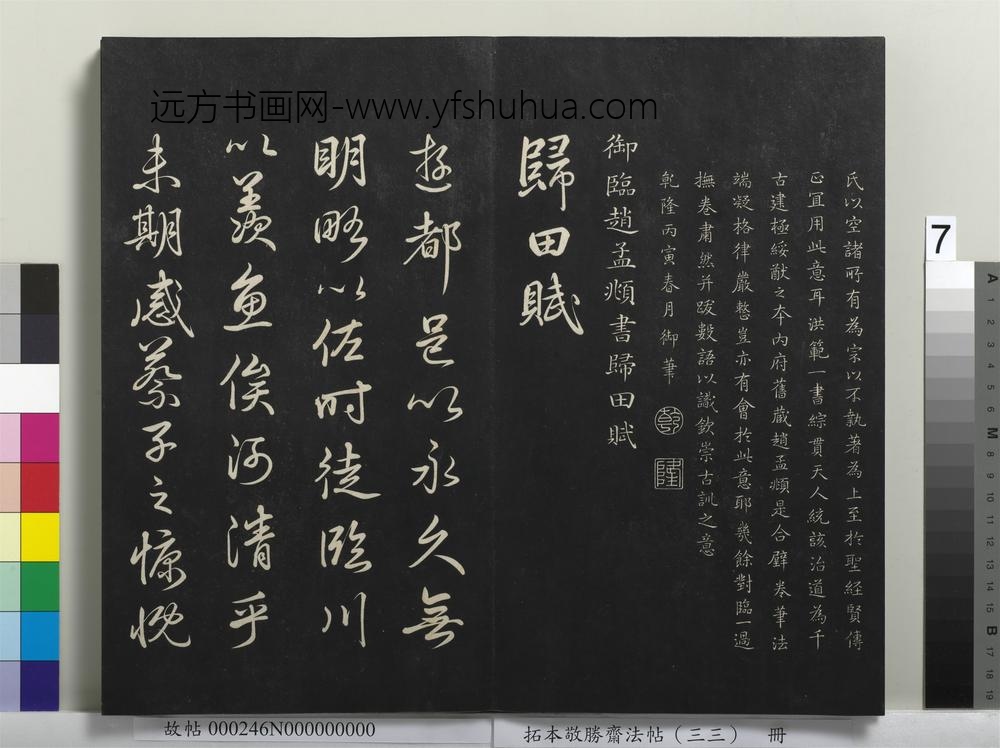 远方书画网-www.yfshuhua.com
氏以空諸所有為宗以不執著為上至於聖經賢傳
正宜用此意耳洪範一書綜貫天人統該治道為千
古建極綏猷之本內府舊蔵趙孟頫是合璧卷筆法
端凝格律嚴整豈亦有會於此意耶幾餘對臨一過
撫卷肅然并跋數語以識欽崇古訓之意
乾隆丙寅春月御筆
乾
隆
御臨趙孟頫書歸田賦
歸田賦
遊都邑以永久無
明略以佐時徒臨川
以羨魚俟河清乎
未期感蔡子之慷慨
7
故帖 000246N000000000
拓本敬勝齋法帖（三三） 冊
A
1
2
3
4
5
6
M
8
9
10
11
12
13
14
15
B
17
18
19